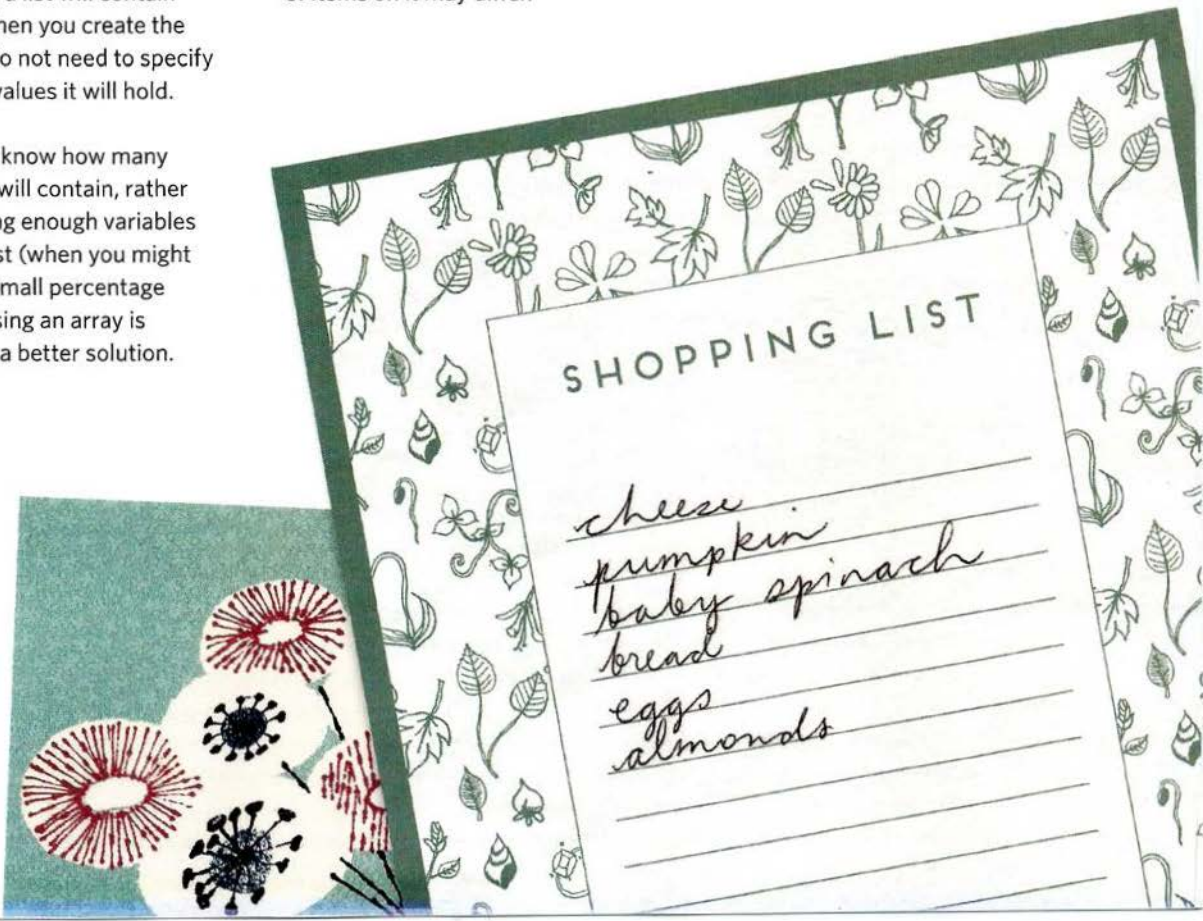 hen you create the
o not need to specify
values it will hold.
know how many
will contain, rather
ng enough variables
st (when you might
mall percentage
sing an array is
a better solution.
SHOPPING LIST
cheese
pumpkin
baby spinach
bread
eggs
almonds